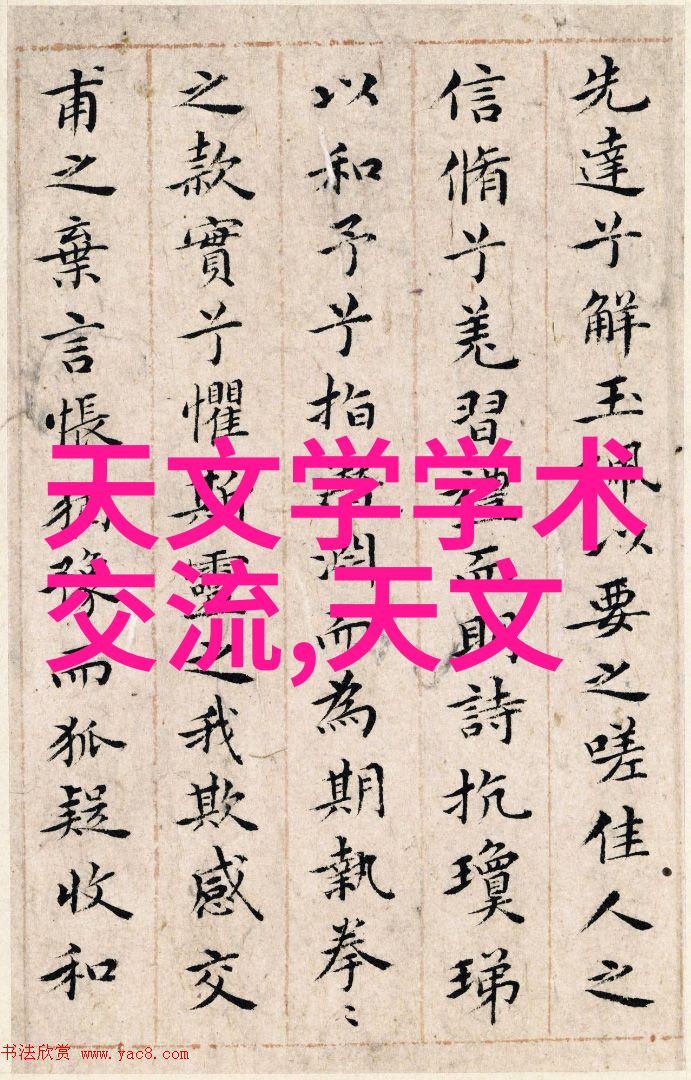 先達兮解玉珮以要之嗟佳人之
信脩兮羌習禮而明詩抗瓊珶
以和予兮指淵而為期執拳〻
之款實兮懼斯靈之我欺感交
甫之棄言悵猶豫而狐疑收和
天文学学术
交流,天文
书法欣赏 www.yac8.com